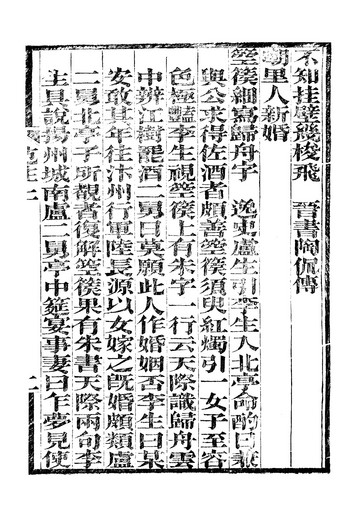 不知挂壁幾梭飛　晉書陶侃傳
朝里人新婚
箜篌細寫歸舟字　逸史盧生引李生入北亭命酌曰兼
與公求得佐酒者頗善箜篌須臾紅燭引一女子至容
色極豔李生視箜篌上有朱字一行云天際識歸舟雲
中辨江樹罷酒二舅曰莫願此人作婚姻否李生曰某
安敢其年往汴州行軍陸長源以女嫁之旣婚頗類盧
二舅北亭子所覩者復解箜篌果有朱書天際兩句李
生具說揚州城南盧二舅亭中筵宴事妻曰年夢見使